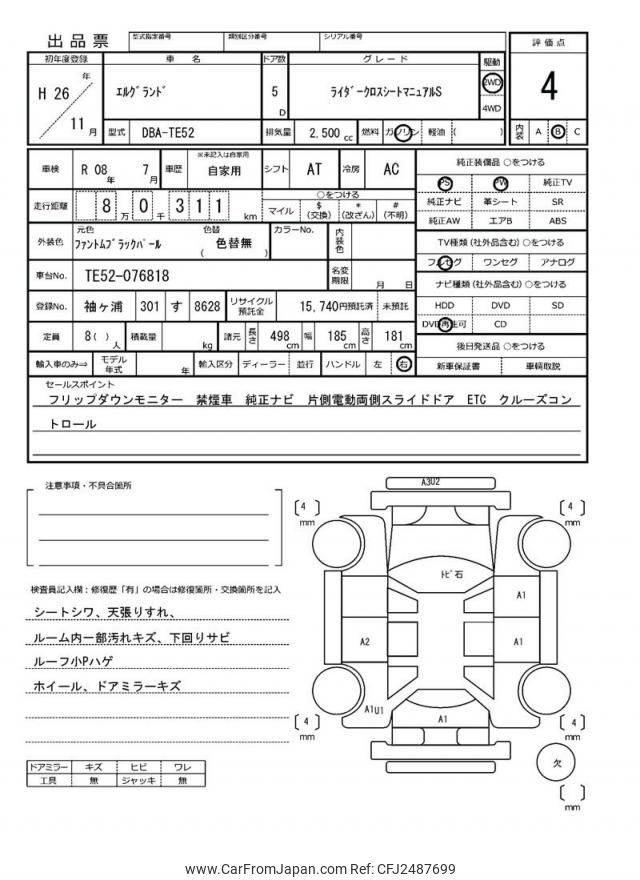 出品票
型式指定番号 類別区分番号 シリアル番号
評価点
4
内装 A B C
初年度登録 車名 ドア数 グレード 駆動
H 26 年 11 月
ｴﾙｸﾞﾗﾝﾄﾞ 5 D ﾗｲﾀﾞｰｸﾛｽｼｰﾄﾏﾆｭｱﾙS 2WD
4WD
型式 DBA-TE52 排気量 2,500 cc 燃料 ガソリン 軽油 ( )
車検 R 08 年 7 月 車歴 ※未記入は自家用 自家用 シフト AT 冷房 AC
走行距離 8 万 0 千 3 1 1 km
○をつける
マイル $ (交換) * (改ざん) # (不明)
外装色 元色 ﾌｧﾝﾄﾑﾌﾞﾗｯｸﾊﾟｰﾙ 色替 ( 色替無 ) カラーNo. 内装色
車台No. TE52-076818 名変期限 月 日
登録No. 袖ヶ浦 301 す 8628 リサイクル預託金 15,740円預託済 未預託
定員 8( ) 人 積載量 kg 諸元 長さ 498 cm 幅 185 cm 高さ 181 cm
輸入車のみ⇒ モデル年式 年 輸入区分 ディーラー 並行 ハンドル 左 右
純正装備品 ○をつける
PS PW 純正TV
純正ナビ 革シート SR
純正AW エアB ABS
TV種類 (社外品含む) ○をつける
フルセグ ワンセグ アナログ
ナビ種類 (社外品含む) ○をつける
HDD DVD SD
DVD再生可 CD
後日発送品 ○をつける
新車保証書 車輌取説
セールスポイント
フリップダウンモニター 禁煙車 純正ナビ 片側電動両側スライドドア ETC クルーズコン
トロール
注意事項・不具合箇所
検査員記入欄：修復歴「有」の場合は修復箇所・交換箇所を記入
シートシワ、天張りすれ、
ルーム内一部汚れキズ、下回りサビ
ルーフ小Pハゲ
ホイール、ドアミラーキズ
ドアミラー キズ ヒビ ワレ
工具 無 ジャッキ 無
A3U2
[ 4 ] mm
[ 4 ] mm
ﾄﾋﾞ石
A1
A2
A1
A1U1
A1
[ 4 ] mm
[ 4 ] mm
欠
[ ] mm
www.CarFromJapan.com Ref: CFJ2487699